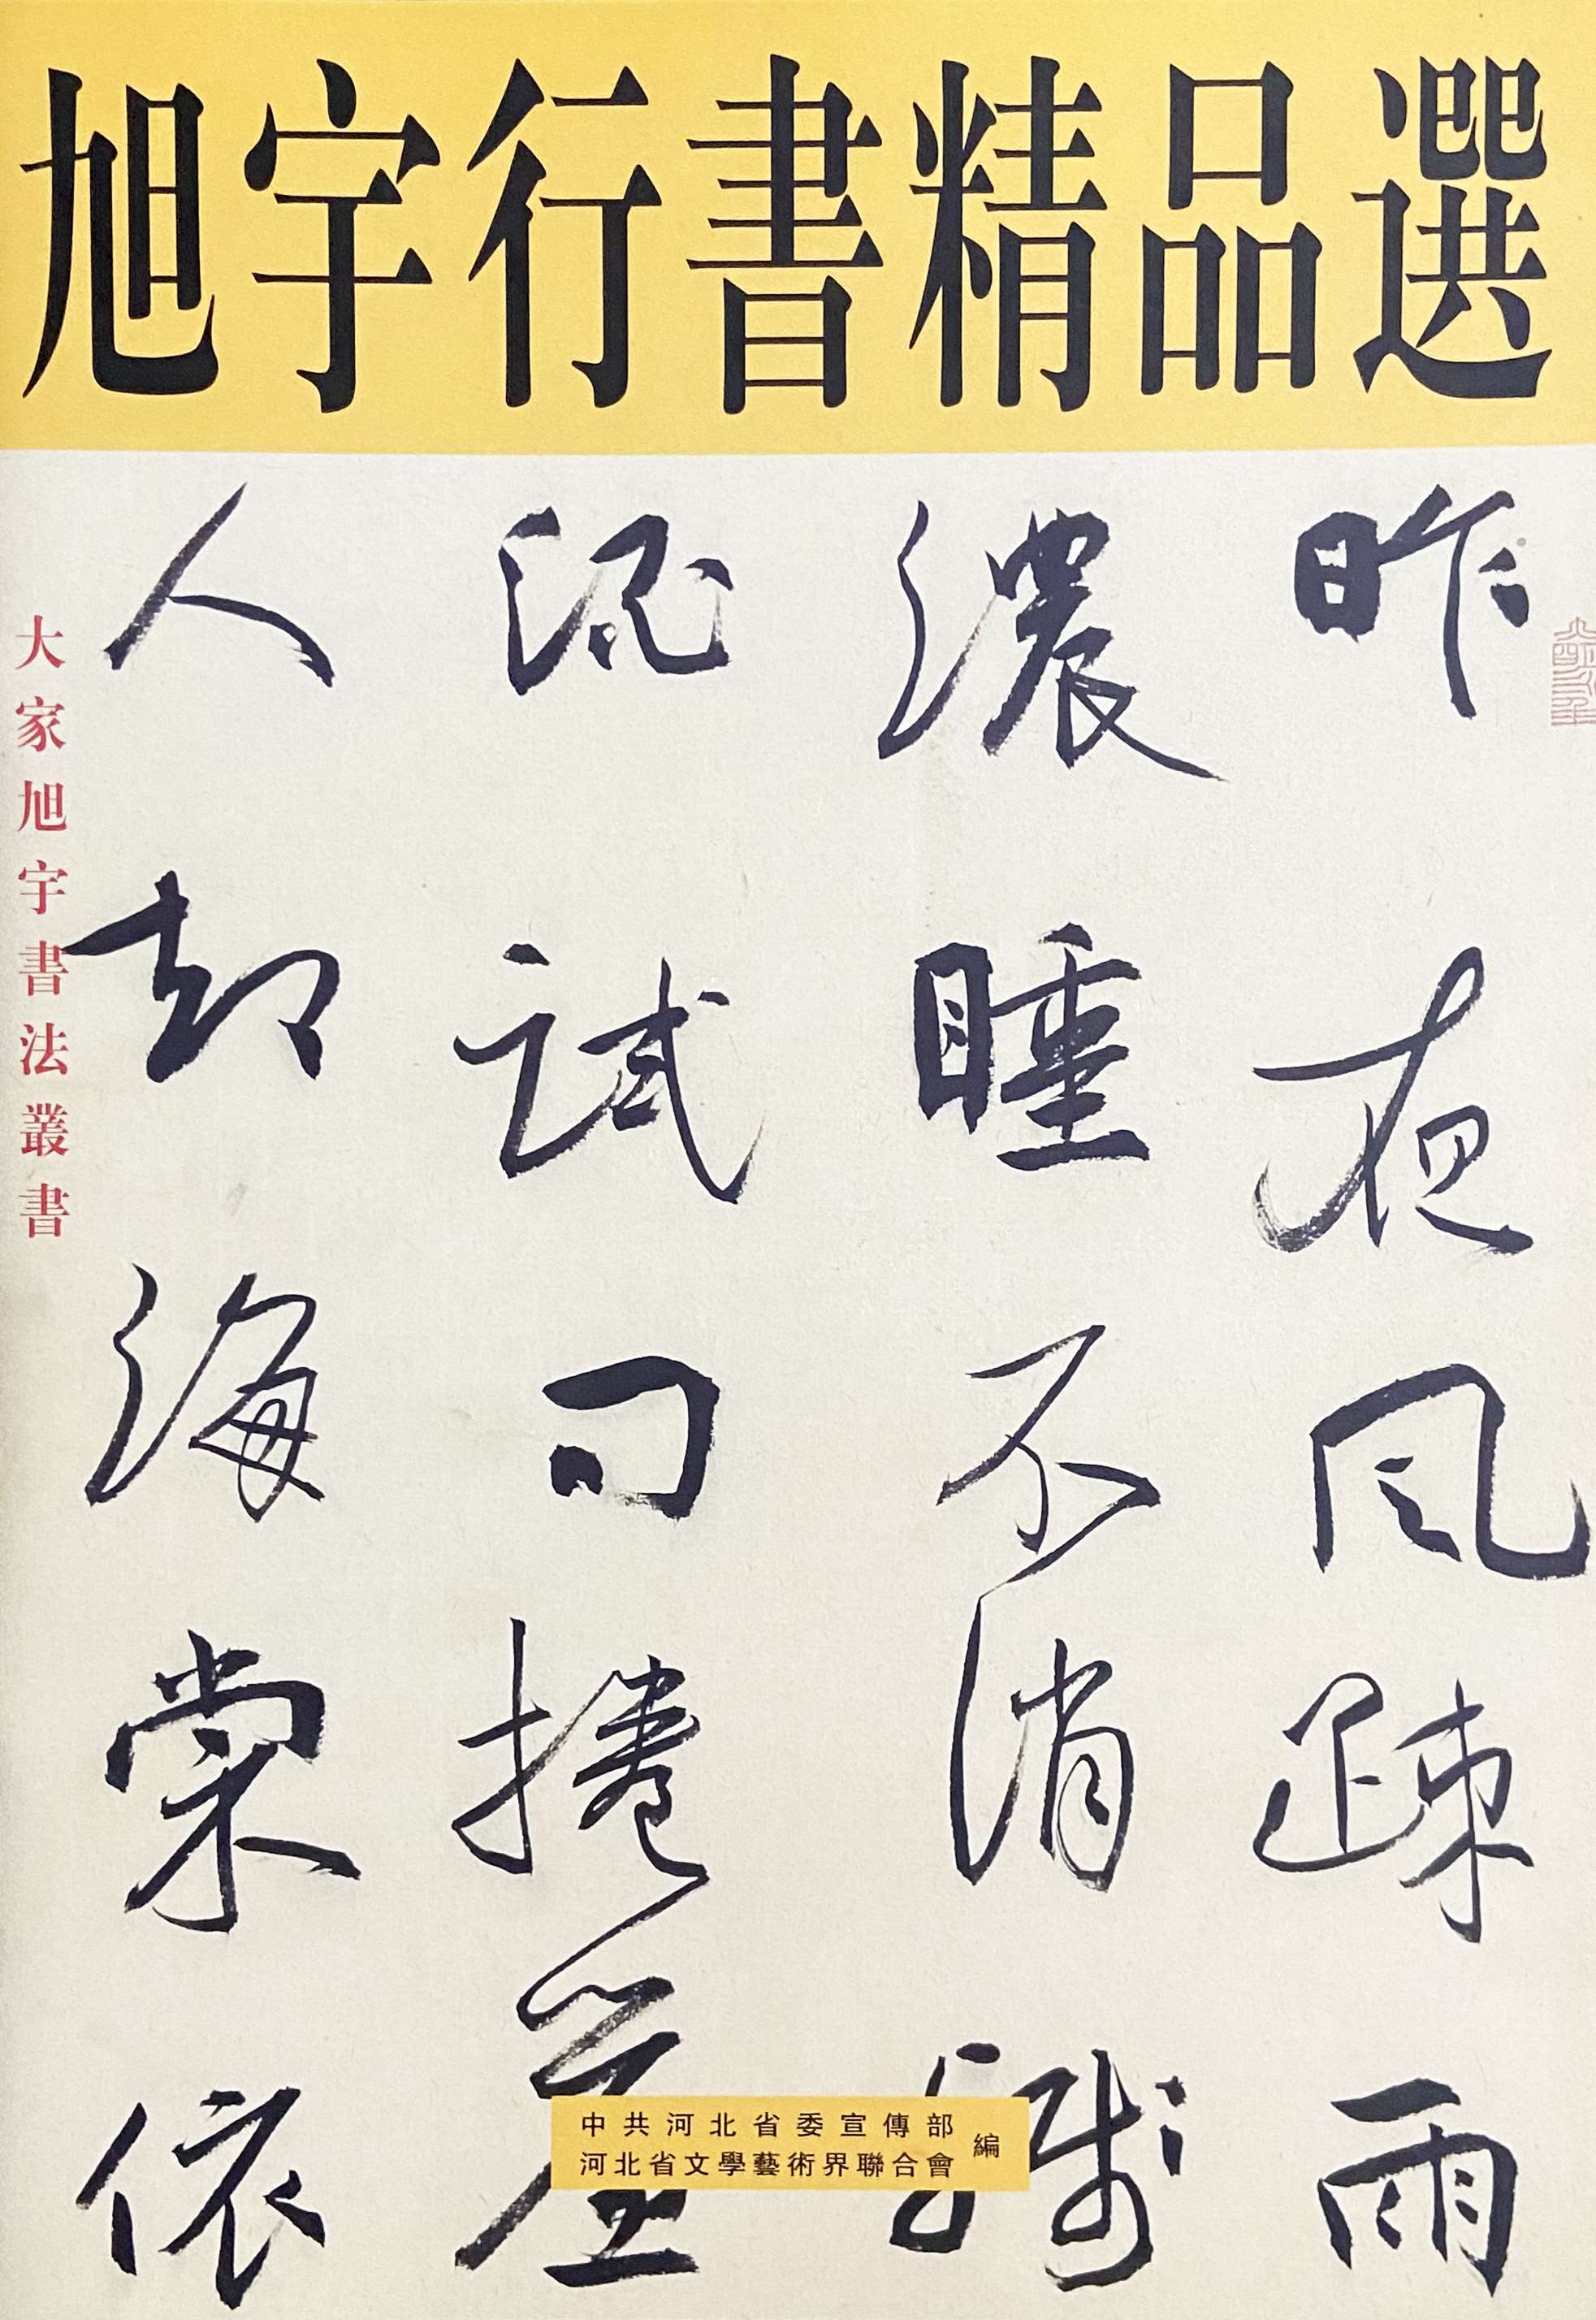 旭宇行書精品選
昨夜風疎雨
濃睡不消殘
酒試問捲簾
人却海棠依
大家旭宇書法叢書
中共河北省委宣傳部
河北省文學藝術界聯合會
編